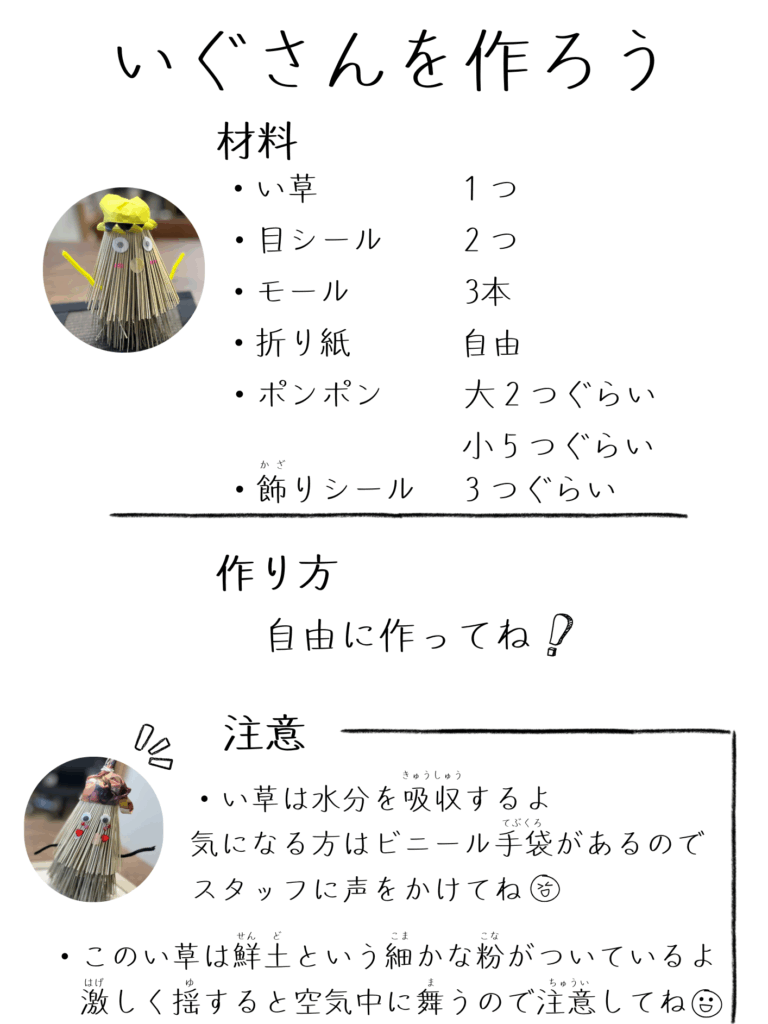 いぐさんを作ろう
材料
・い草 1つ
・目シール 2つ
・モール 3本
・折り紙 自由
・ポンポン 大2つぐらい
小5つぐらい
かざ
・飾りシール 3つぐらい
作り方
自由に作ってね!
注意
きゅうしゅう
・い草は水分を吸収するよ
てぶくろ
気になる方はビニール手袋があるので
スタッフに声をかけてね
せん ど こま こな
・このい草は鮮土という細かな粉がついているよ
はげ ゆ ま ちゅうい
激しく揺すると空気中に舞うので注意してね